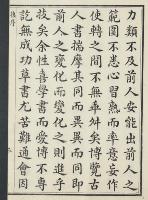 力類不及前人安能出前人之
範圍不悉心習熟而率意妄作
使轉之間不無舛矣博覽古
人書揣摩其同而異異而同即
前人之變化而變化之則進乎
技矣余性喜學書而愛博不專
訖無成功草書尤苦難通會因